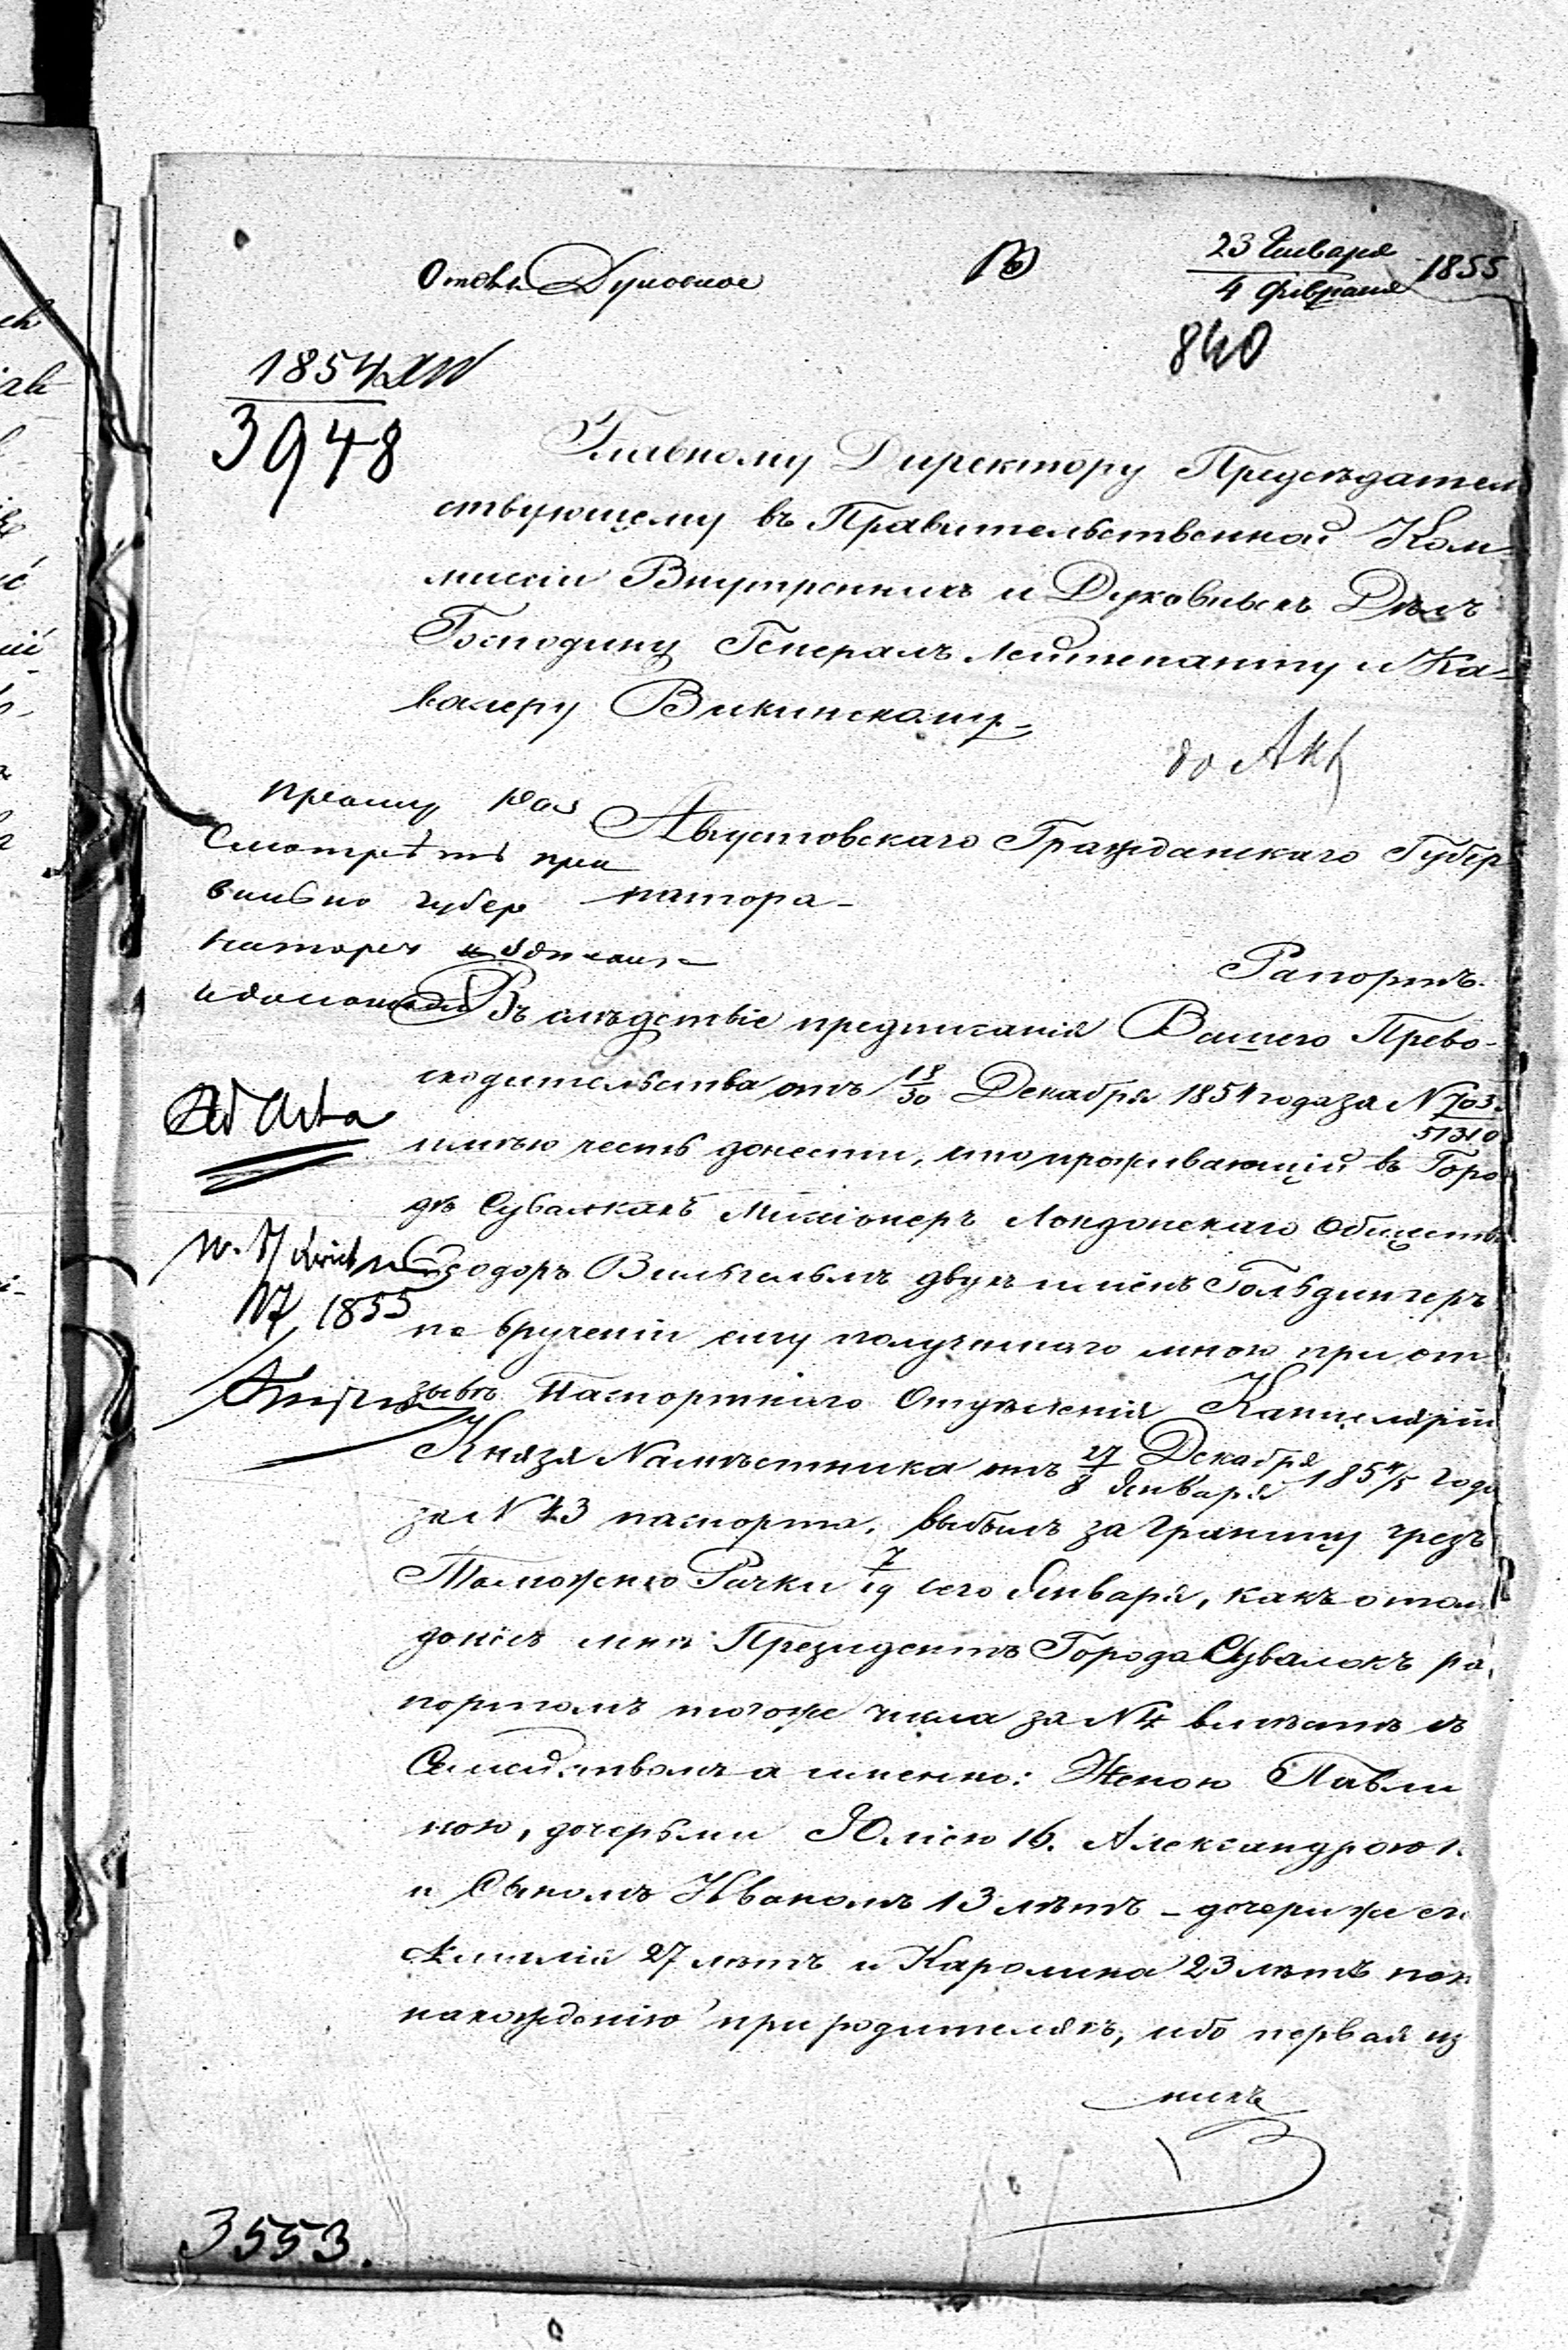 23 Января
4 Февраля 1855
840
1854
3948
Главному Директору Предсѣдатель
ствующему въ Правительственной Ком-
миссіи Внутреннихъ и Духовныхъ Дѣлъ
Господину Генералъ Лейтенанту и Ка-
валеру Викинскому
до Акт
Августовскаго Гражданскаго Губер
натора-
Рапортъ.
прошу раз
смотрѣть пра
вильно губер
наторъ
Въ слѣдствіе предписанія Вашего Прево-
сходительства отъ 18/30 Декабря 1854 года за N 703/51310
имѣю честь донести, что проживающій въ Горо
дѣ Сувалкахъ Миссіонеръ Лондонскаго Общества
Ѳеодоръ Вильгельмъ двухъ имёнъ Гольдингеръ
по врученіи ему полученнаго мною при от
зывѣ Паспортнаго Отдѣленія Канцеляріи
Князя Намѣстника отъ 27 Декабря/8 Января 1854/5 года
за N 43 паспорта, выбылъ за границу чрезъ
Таможню Рачки 7/19 сего Января, какъ о томъ
донёсъ мнѣ Президентъ Города Сувалокъ ра-
портомъ тогоже числа за N 4 вмѣстѣ съ
Семействомъ а именно: Женою Павли
ною, дочерьми Юліею 16. Александрою 1.
и Сыномъ Иваномъ 13 лѣтъ - дочери же его
Амалія 27 лѣтъ и Каролина 23 лѣтъ
нахожденію при родителяхъ, ибо первая из
нихъ
Ad Acta
1855
3553.